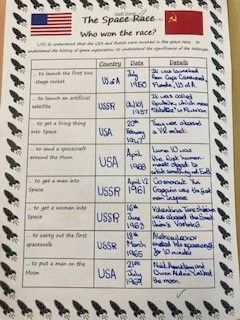 The Space Race
Who won the race?
L/O: to understand that the USA and Russia were involved in the space race. to
understand the history of space exploration. to understand the significance of the telescope
Country Date Details
... to launch the first two-
stage rocket
US of A
July
1950
It was launched
from Cape Canaveral,
Florida, US of A.
... to launch an artificial
satellite
USSR
1957
It was called
Sputnik, which means
in Russian
... to get a living thing
into Space
USA
20th
1947
They were placed
V2 rocket.
... to send a spacecraft
around the Moon
USA
April
1966
Luna 10 was
the first human
made object to
something not Earth
... to get a man into
Space
USSR
April 12
1961
Cosmonaut Yuri
Gagarin was the first
man in space
... to get a woman into
Space
USSR
16th
June
1963
Valentina Tereshkova
was aboard the
Vostok 6.
... to carry out the first
spacewalk
USSR
18th
March
1965
Alexei Leonov
exited his spacecraft
for 10 minutes
... to put a man on the
Moon
USA
21st
July
1969
Neil Armstrong and
Aldrin walked the
moon.